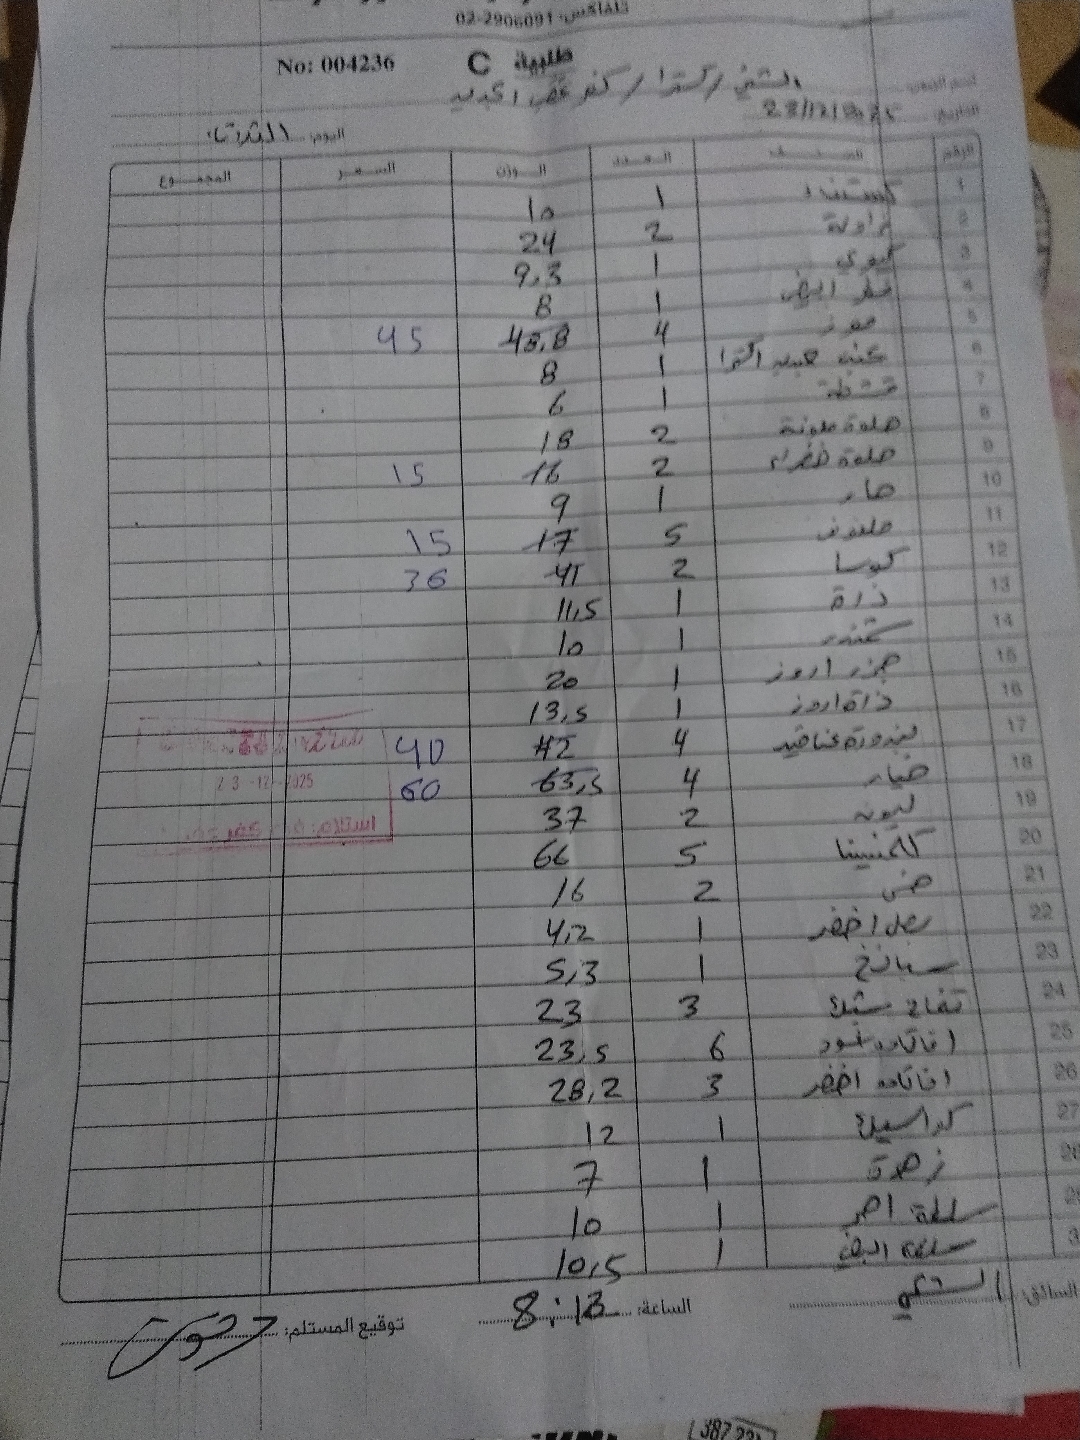 تلفاكس: 02-2906091
No: 004236 طلبية C
اسم الزبون: الشني / اكسترا / كفر عقب الجديد
التاريخ: 23/12/2025 اليوم: الثلاثاء
الرقم الصنف العدد الوزن السعر المجموع
1 كستنا 1 10
2 فراولة 2 24
3 كيوي 1 9,3
4 فطر ابيض 1 8
5 موز 4 48,8 45
6 عنب اكسترا 1 8
7 قشطة 1 6
8 حلوة ملونة 2 18
9 حلوة خضراء 2 16 15
10 حار 1 9
11 ملفوف 5 17 15
12 كوسا 2 41 36
13 ذرة 1 11,5
14 شمندر 1 10
15 جزر اروز 1 20
16 ذرة اروز 1 13,5
17 بندورة عناقيد 4 42 40
18 خيار 4 63,5 60
19 ليمون 2 37
20 كلمنتينا 5 66
21 خس 2 16
22 بصل اخضر 1 4,2
23 سبانخ 1 5,3
24 تفاح ستارك 3 23
25 اناناس 6 23,5
26 اخضر 3 28,2
27 1 12
28 زهرة 1 7
29 سلطة احمر 1 10
3 سلطة ابيض 1 10,5
23-12-2025
استلام:
السائق: الشني الساعة: 8:13 توقيع المستلم: